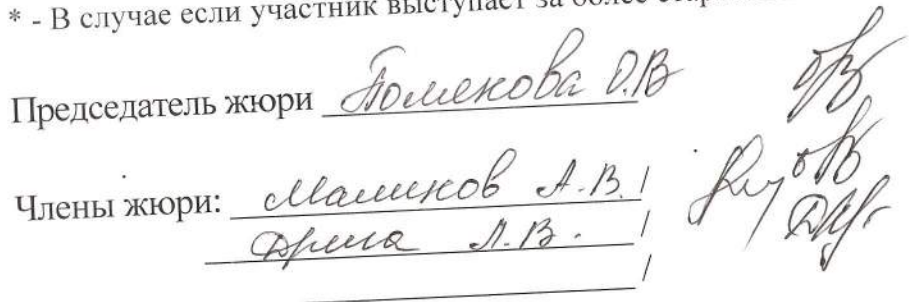 * - В случае если участник выступает за более
Председатель жюри О.В
Члены жюри: Маликов А.В. /
Дрига Л.В. /
/